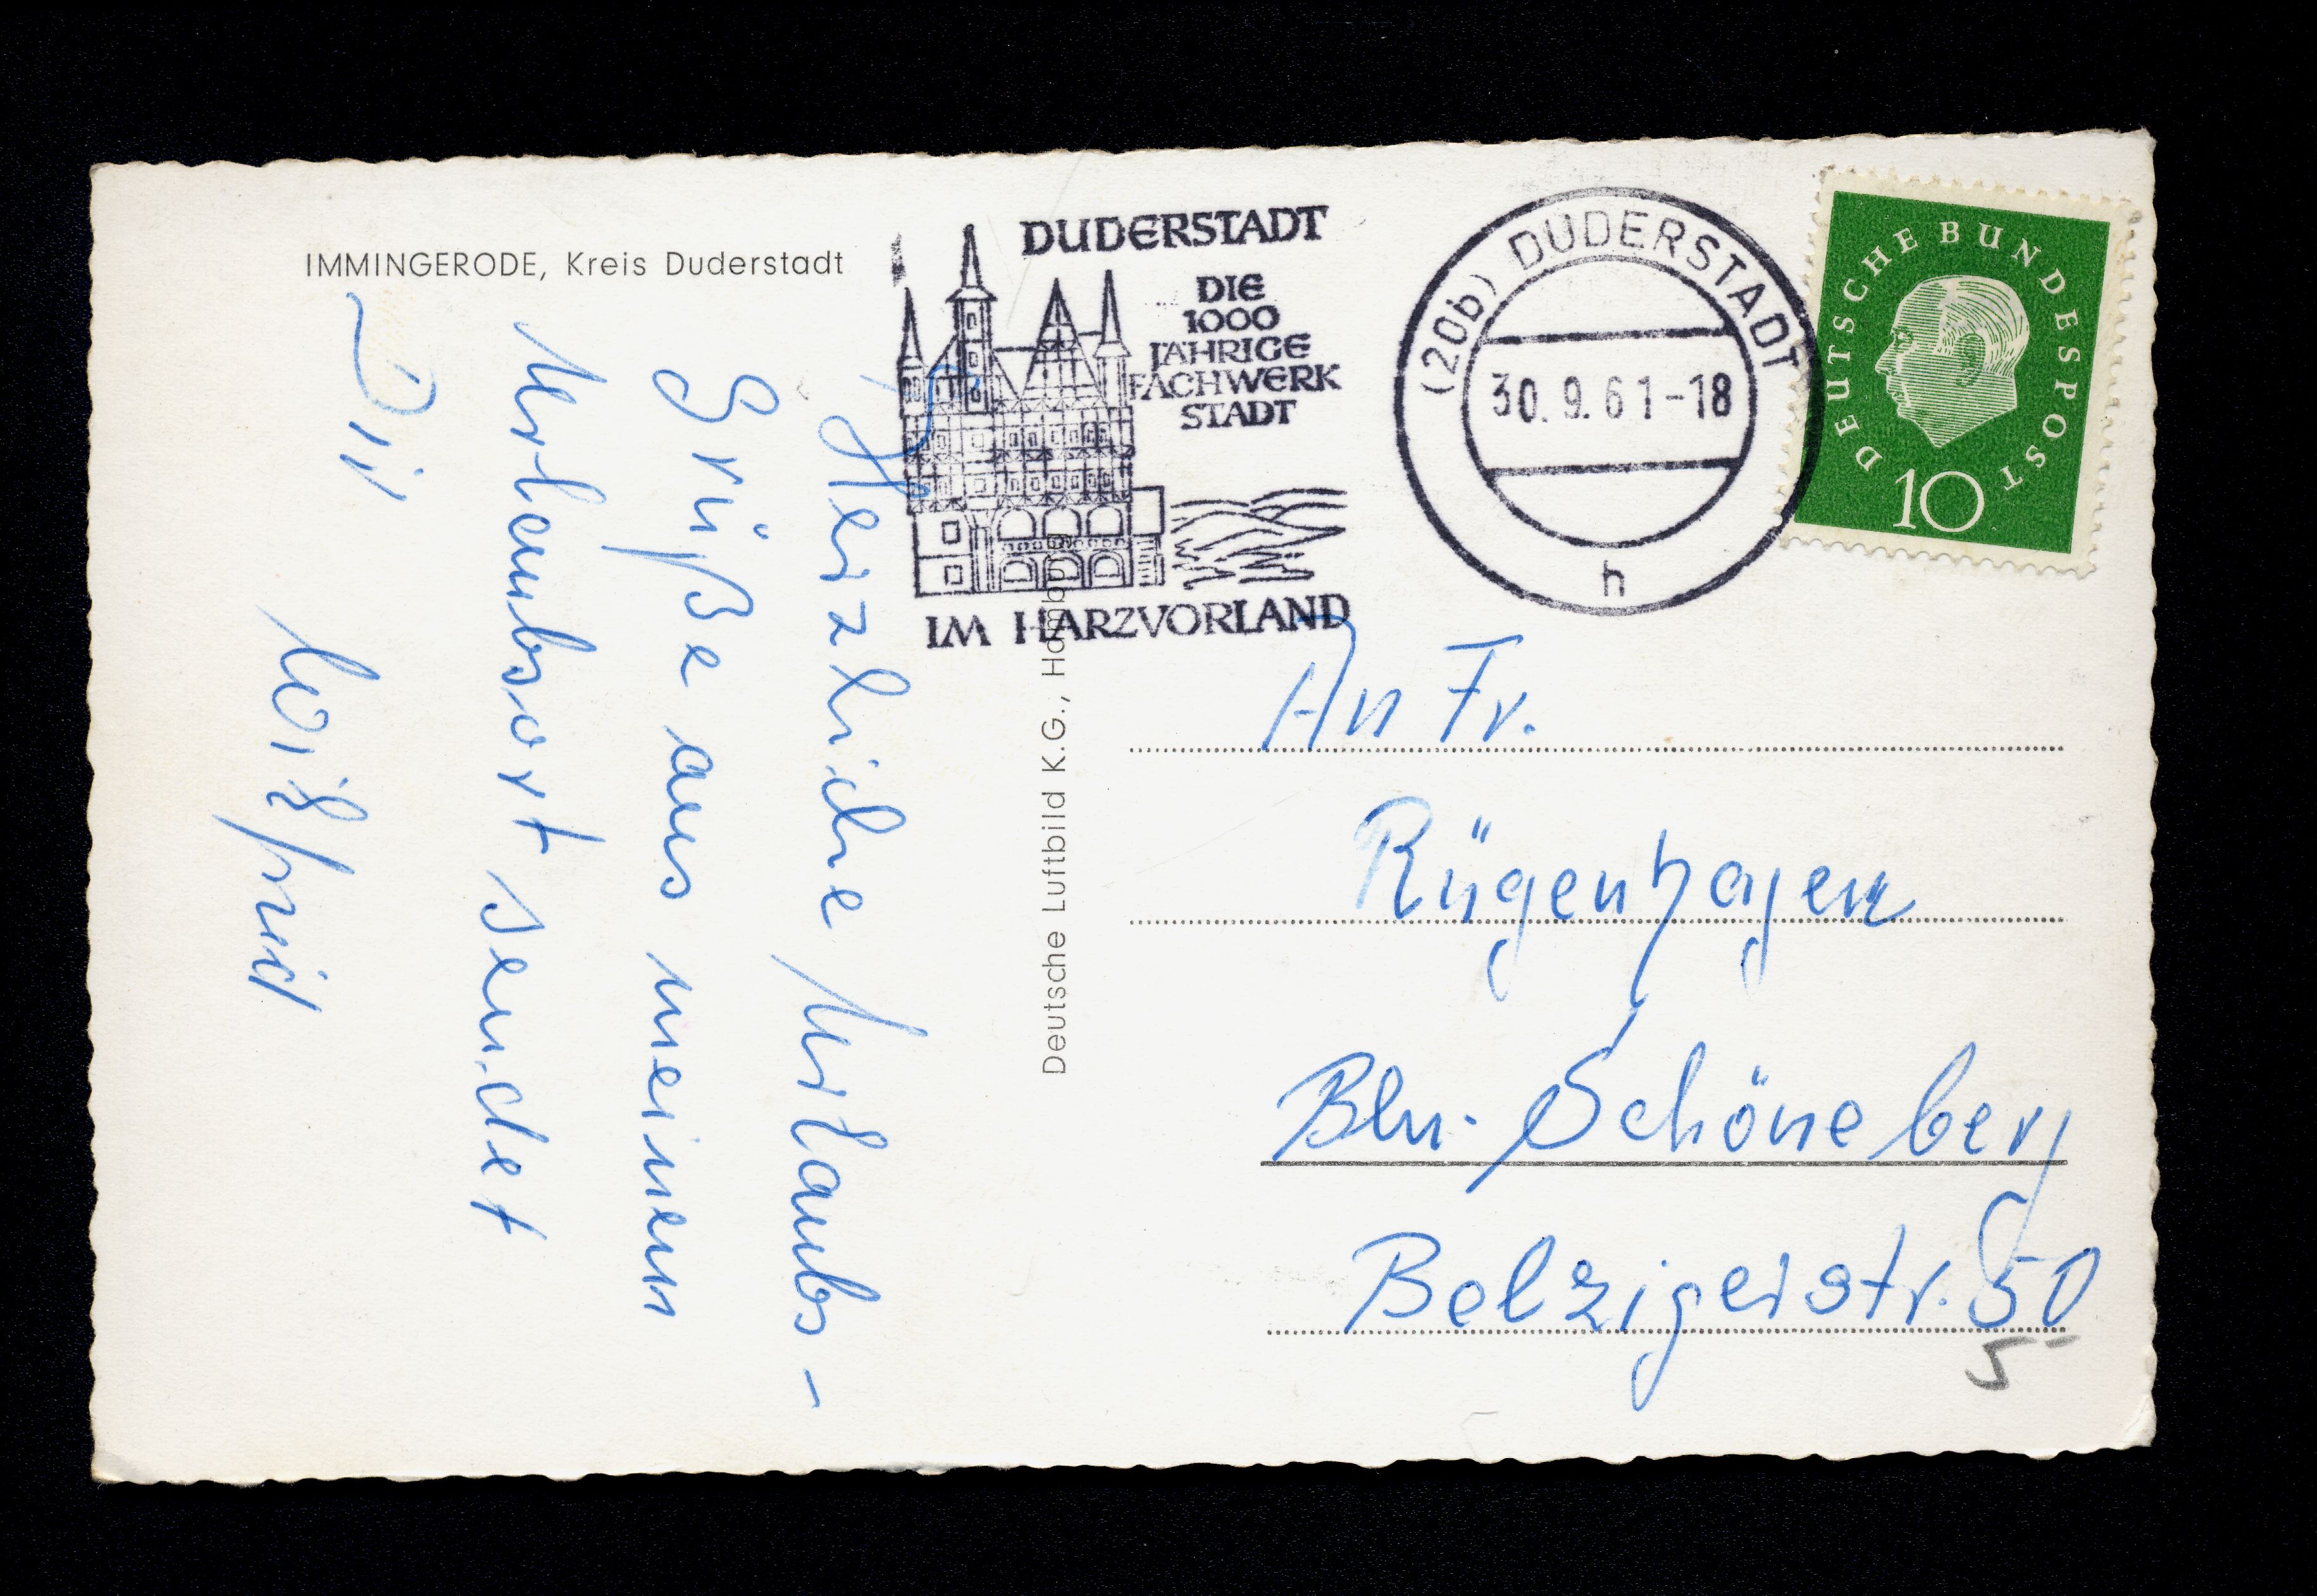 IMMINGERODE, Kreis Duderstadt
Herzliche Urlaubs-
Grüße aus meinem
Urlaubsort sendet
Dir
Wilfried
Deutsche Luftbild K.G., Hamburg
DUDERSTADT
DIE
1000
JÄHRIGE
FACHWERK
STADT
IM HARZVORLAND
(20b) DUDERSTADT
30.9.61-18
h
DEUTSCHE BUNDESPOST
10
An Fr.
Rügenhagen
Bln.-Schöneberg
Belzigerstr. 50
5